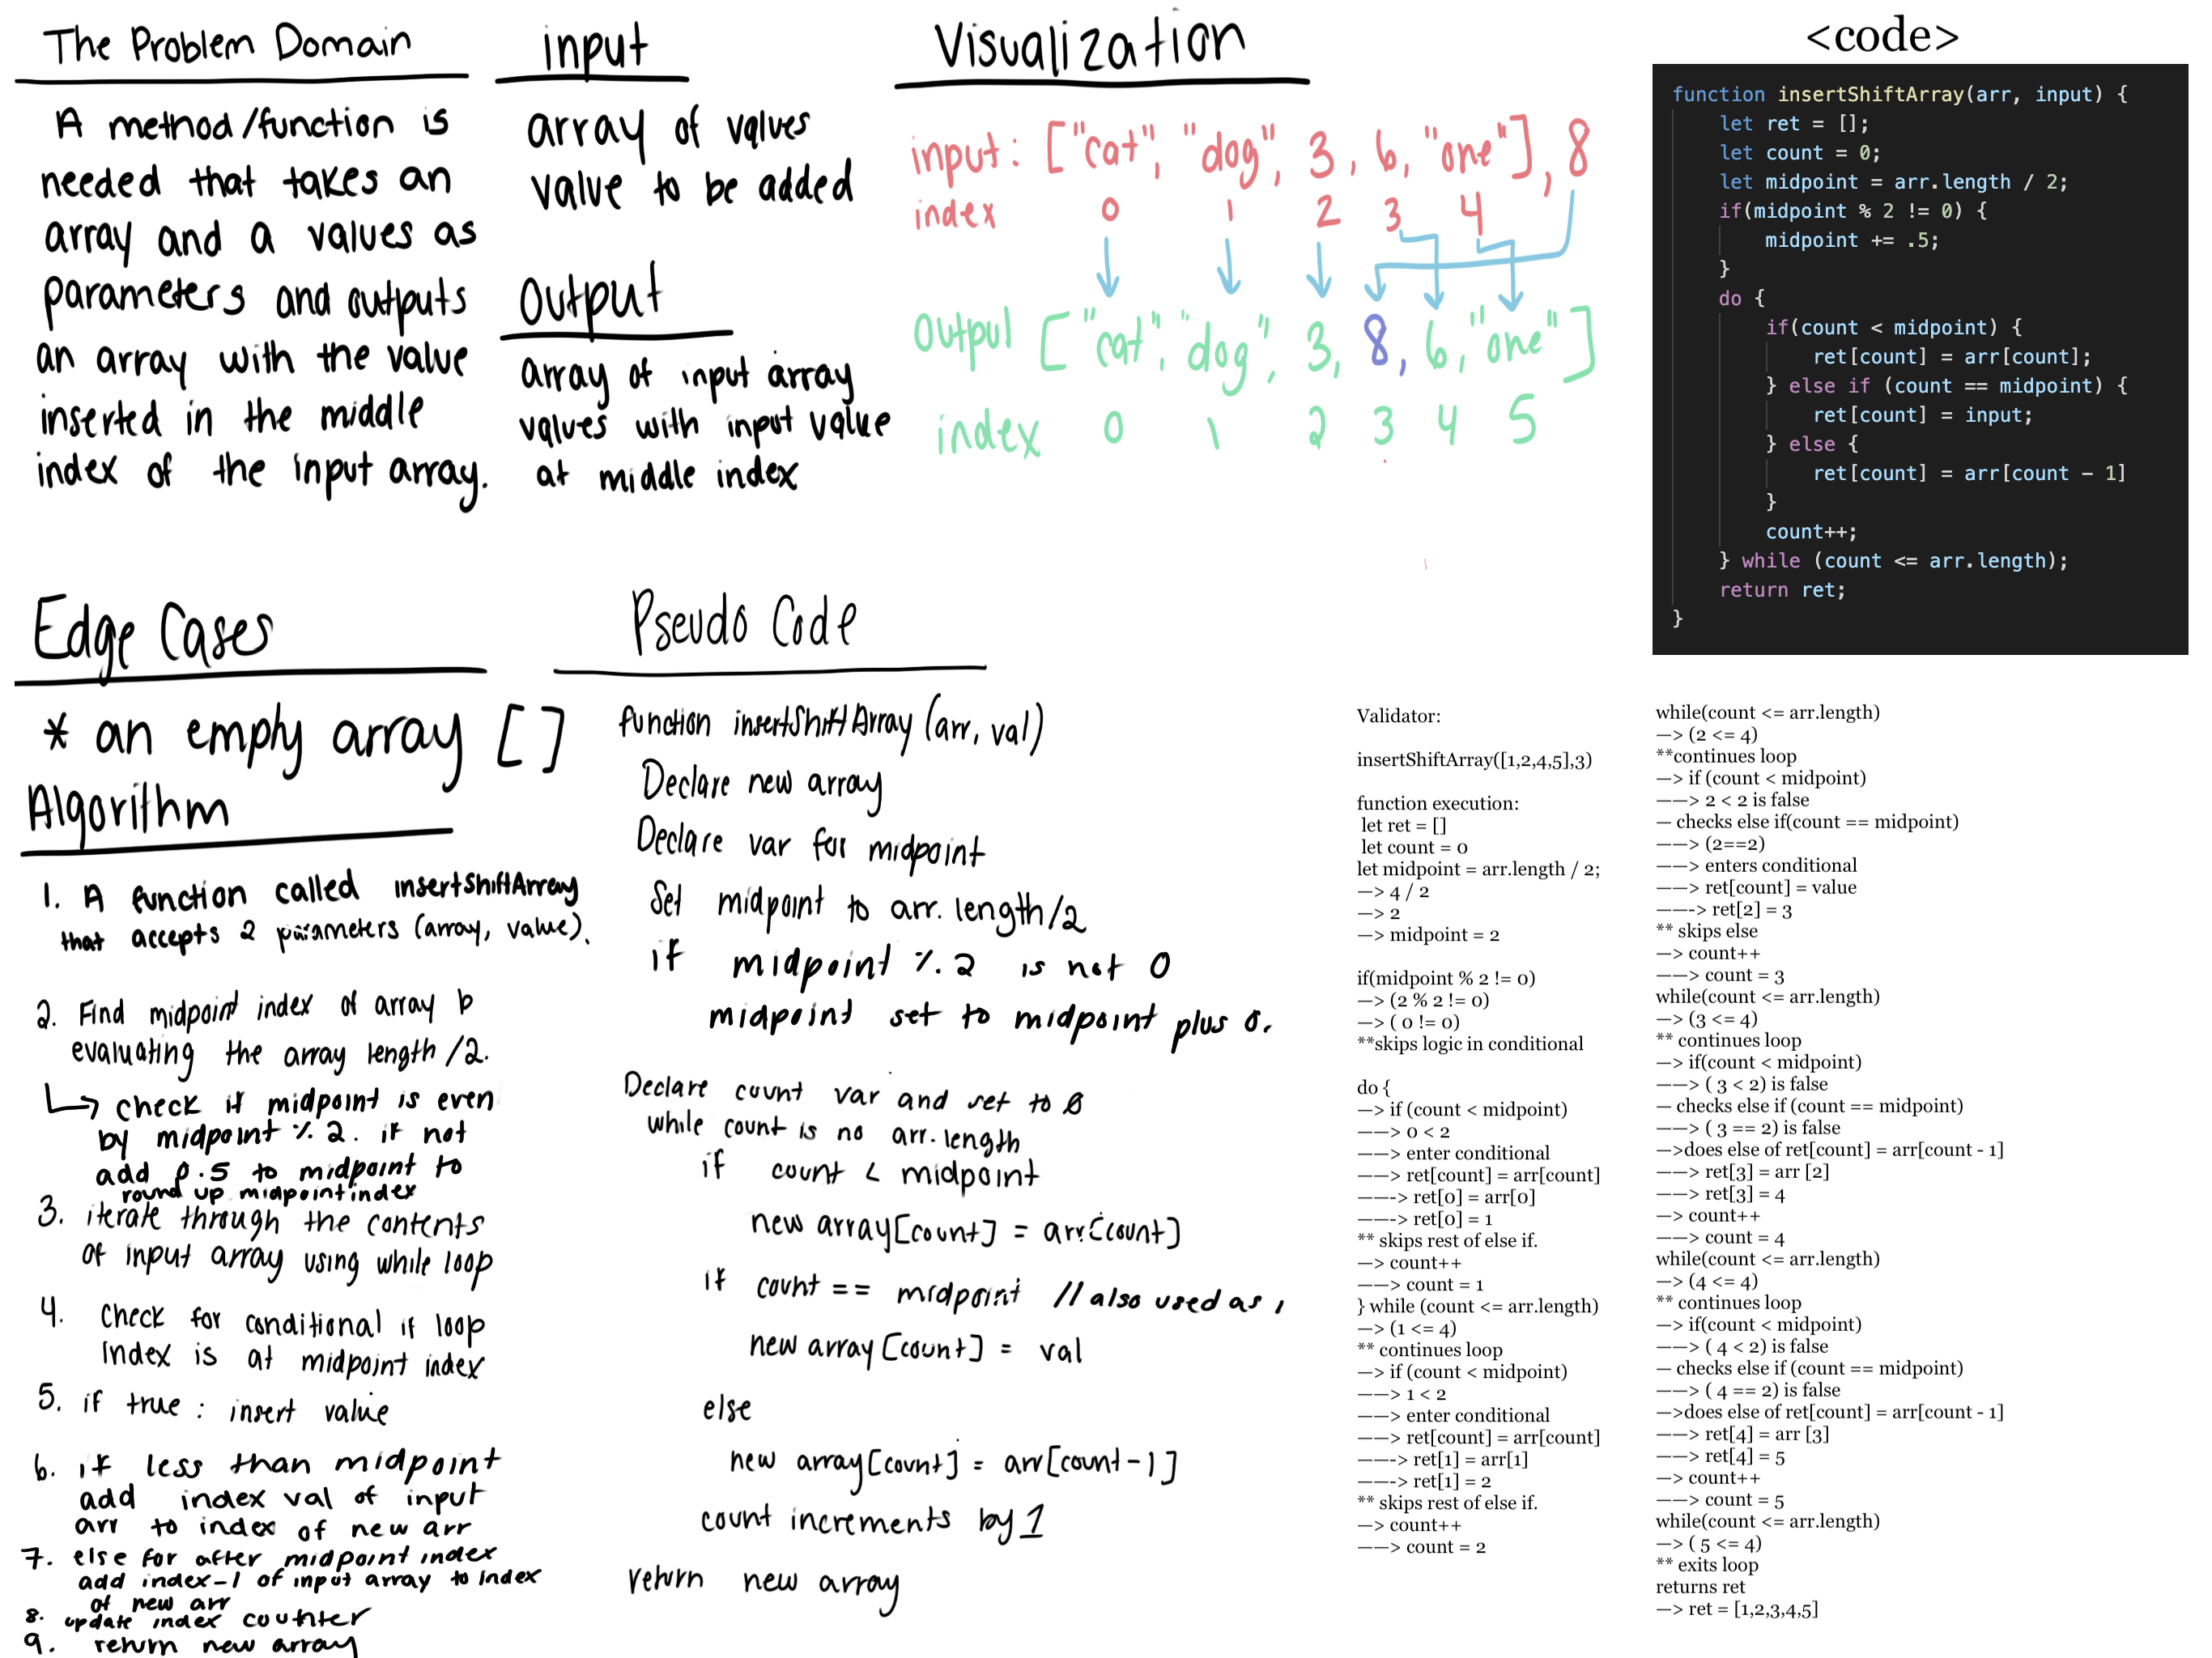 The Problem Domain
A method/function is
needed that takes an
array and a values as
parameters and outputs
an array with the value
inserted in the middle
index of the input array.
input
array of values
value to be added
Output
array of input array
values with input value
at middle index
Visualization
input: ["cat", "dog", 3, 6, "one"], 8
index 0 1 2 3 4
Output ["cat", "dog", 3, 8, 6, "one"]
index 0 1 2 3 4 5
<code>
function insertShiftArray(arr, input) {
let ret = [];
let count = 0;
let midpoint = arr.length / 2;
if(midpoint % 2 != 0) {
midpoint += .5;
}
do {
if(count < midpoint) {
ret[count] = arr[count];
} else if (count == midpoint) {
ret[count] = input;
} else {
ret[count] = arr[count - 1]
}
count++;
} while (count <= arr.length);
return ret;
}
Edge Cases
* an empty array []
Algorithm
1. A function called insertShiftArray
that accepts 2 parameters (array, value).
2. Find midpoint index of array b
evaluating the array length /2.
↳ check if midpoint is even
by midpoint % 2. if not
add 0.5 to midpoint to
round up midpoint index
3. iterate through the contents
of input array using while loop
4. Check for conditional if loop
index is at midpoint index
5. if true: insert value
6. if less than midpoint
add index val of input
arr to index of new arr
7. else for after midpoint index
add index-1 of input array to index
of new arr
8. update index counter
9. return new array
Pseudo Code
function insertShiftArray (arr, val)
Declare new array
Declare var for midpoint
Set midpoint to arr.length/2
if midpoint % 2 is not 0
midpoint set to midpoint plus 0.
Declare count var and set to 0
while count is no arr.length
if count < midpoint
new array[count] = arr[count]
if count == midpoint // also used as i
new array[count] = val
else
new array[count] = arr[count-1]
count increments by 1
return new array
Validator:
insertShiftArray([1,2,4,5],3)
function execution:
let ret = []
let count = 0
let midpoint = arr.length / 2;
—> 4 / 2
—> 2
—> midpoint = 2
if(midpoint % 2 != 0)
—> (2 % 2 != 0)
—> ( 0 != 0)
**skips logic in conditional
do {
—> if (count < midpoint)
——> 0 < 2
——> enter conditional
——> ret[count] = arr[count]
———> ret[0] = arr[0]
———> ret[0] = 1
** skips rest of else if.
—> count++
——> count = 1
} while (count <= arr.length)
—> (1 <= 4)
** continues loop
—> if (count < midpoint)
——> 1 < 2
——> enter conditional
——> ret[count] = arr[count]
———> ret[1] = arr[1]
———> ret[1] = 2
** skips rest of else if.
—> count++
——> count = 2
while(count <= arr.length)
—> (2 <= 4)
**continues loop
—> if (count < midpoint)
——> 2 < 2 is false
— checks else if(count == midpoint)
——> (2==2)
——> enters conditional
——> ret[count] = value
———> ret[2] = 3
** skips else
—> count++
——> count = 3
while(count <= arr.length)
—> (3 <= 4)
** continues loop
—> if(count < midpoint)
——> ( 3 < 2) is false
— checks else if (count == midpoint)
——> ( 3 == 2) is false
—>does else of ret[count] = arr[count - 1]
——> ret[3] = arr [2]
——> ret[3] = 4
—> count++
——> count = 4
while(count <= arr.length)
—> (4 <= 4)
** continues loop
—> if(count < midpoint)
——> ( 4 < 2) is false
— checks else if (count == midpoint)
——> ( 4 == 2) is false
—>does else of ret[count] = arr[count - 1]
——> ret[4] = arr [3]
——> ret[4] = 5
—> count++
——> count = 5
while(count <= arr.length)
—> ( 5 <= 4)
** exits loop
returns ret
—> ret = [1,2,3,4,5]